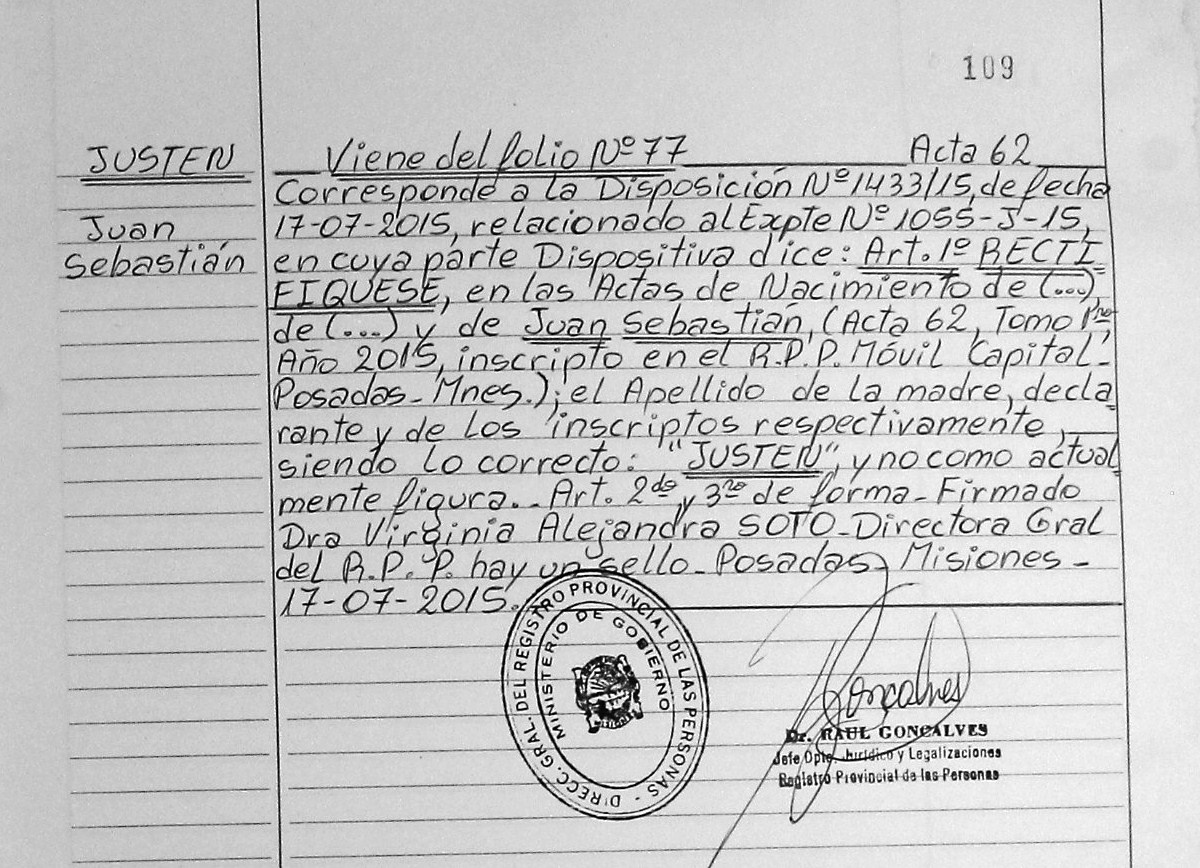 109
JUSTEN
Juan
Sebastián
Viene del folio Nº 77 Acta 62
Corresponde a la Disposición Nº 1433/15, de fecha
17-07-2015, relacionado al Expte Nº 1055-J-15,
en cuya parte Dispositiva dice: Art. 1º RECTI
FIQUESE, en las Actas de Nacimiento de (...),
de (...) y de Juan Sebastián, (Acta 62, Tomo 1ro
Año 2015, inscripto en el R.P.P. Móvil Capital-
Posadas- Mnes.); el Apellido de la madre, decla
rante y de los inscriptos respectivamente,
siendo lo correcto: "JUSTEN", y no como actual
mente figura.- Art. 2do y 3ro de forma- Firmado
Dra Virginia Alejandra SOTO- Directora Gral
del R.P.P. hay un sello- Posadas- Misiones-
17-07-2015.
DIRECC. GRAL. DEL REGISTRO PROVINCIAL DE LAS PERSONAS -
MINISTERIO DE GOBIERNO
Goncalves
Dr. RAUL GONCALVES
Jefe Dpto. Jurídico y Legalizaciones
Registro Provincial de las Personas